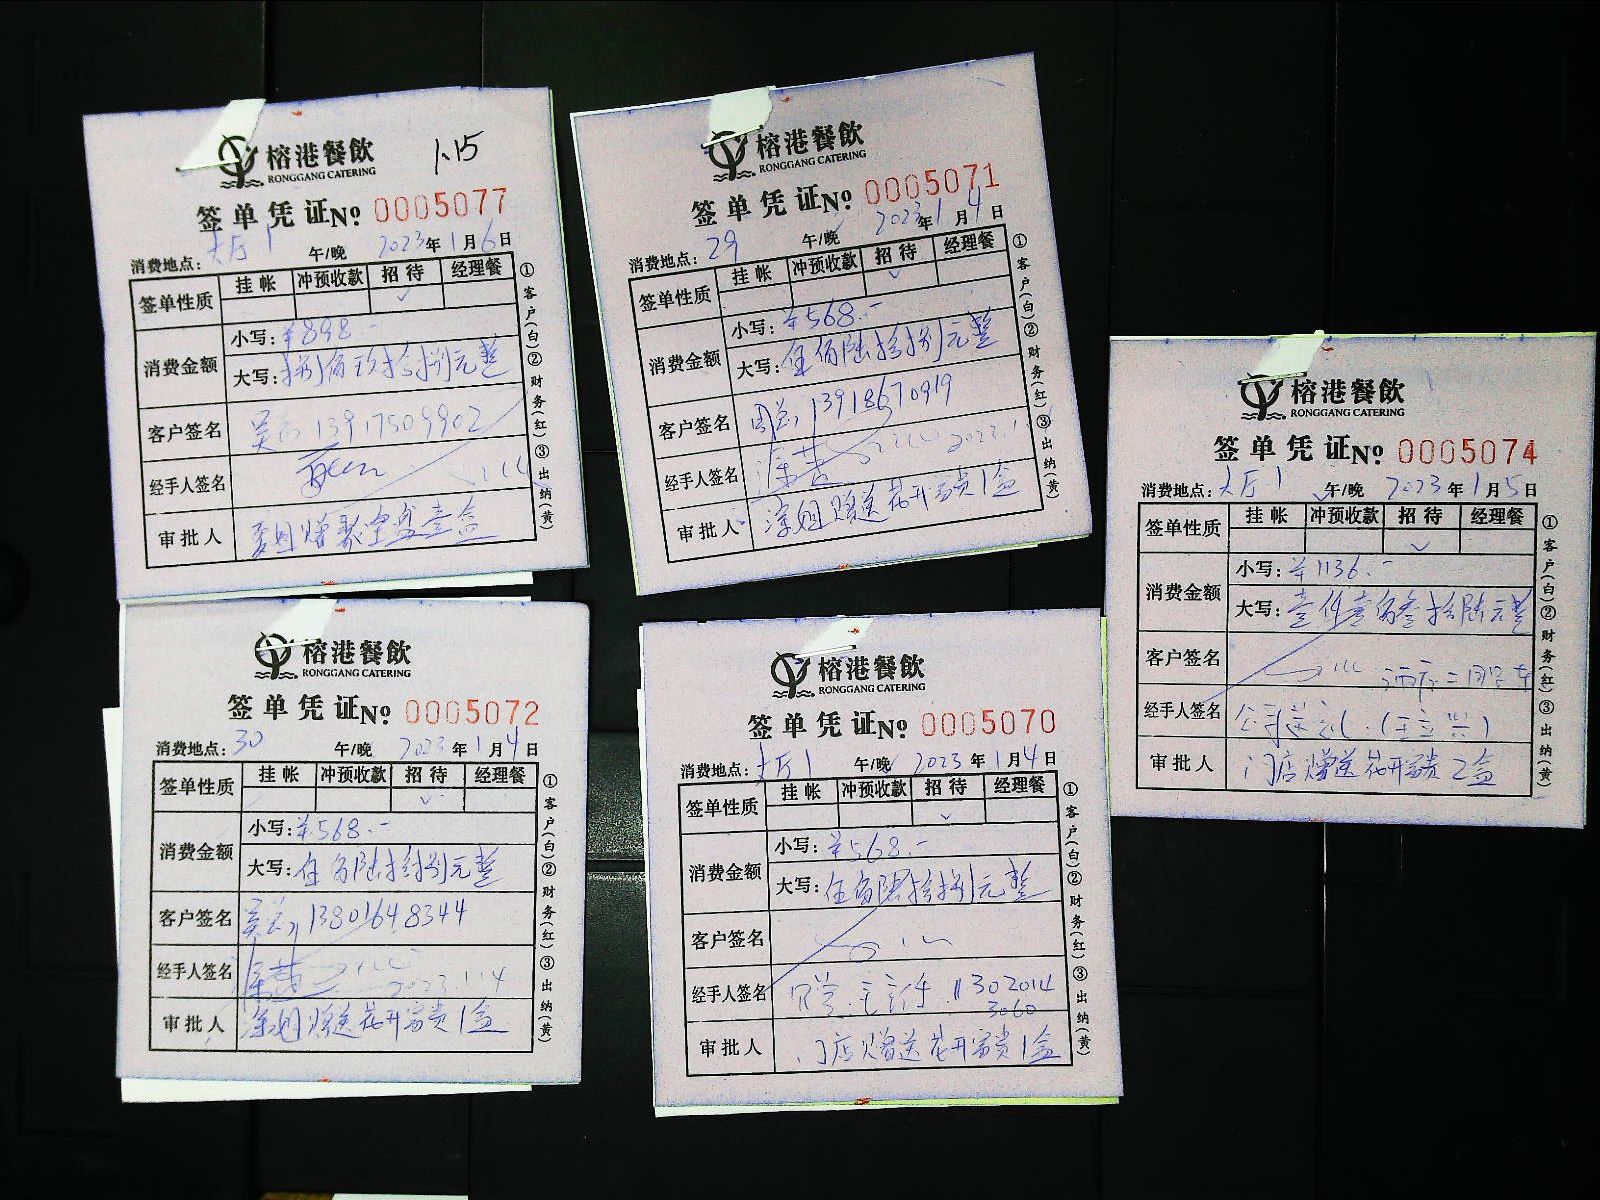 榕港餐飲
RONGGANG CATERING
1.15
签单凭证 Nº 0005077
消费地点：大厅1 午/晚 2023年1月6日
签单性质 挂帐 冲预收款 招待 经理餐
✓
消费金额
小写：¥898.-
大写：捌佰玖拾捌元整
客户签名 吴总 13917509902
经手人签名
审批人 赠聚宝盆壹盒
①客户(白)②财务(红)③出纳(黄)
榕港餐飲
RONGGANG CATERING
签单凭证 Nº 0005071
消费地点：29 午/晚 2023年1月4日
签单性质 挂帐 冲预收款 招待 经理餐
✓
消费金额
小写：¥568.-
大写：伍佰陆拾捌元整
客户签名 周总 13918670919
经手人签名 2023.1
审批人 赠送花开富贵1盒
①客户(白)②财务(红)③出纳(黄)
榕港餐飲
RONGGANG CATERING
签单凭证 Nº 0005074
消费地点：大厅1 午/晚 2023年1月5日
签单性质 挂帐 冲预收款 招待 经理餐
✓
消费金额
小写：¥1136.-
大写：壹仟壹佰叁拾陆元整
客户签名
经手人签名 公司送礼.
审批人 门店赠送花开富贵2盒
①客户(白)②财务(红)③出纳(黄)
榕港餐飲
RONGGANG CATERING
签单凭证 Nº 0005072
消费地点：30 午/晚 2023年1月4日
签单性质 挂帐 冲预收款 招待 经理餐
✓
消费金额
小写：¥568.-
大写：伍佰陆拾捌元整
客户签名 吴总 13801648344
经手人签名 2023.1.4
审批人 赠送花开富贵1盒
①客户(白)②财务(红)③出纳(黄)
榕港餐飲
RONGGANG CATERING
签单凭证 Nº 0005070
消费地点：大厅1 午/晚 2023年1月4日
签单性质 挂帐 冲预收款 招待 经理餐
✓
消费金额
小写：¥568.-
大写：伍佰陆拾捌元整
客户签名
经手人签名 主任
3060
审批人 门店赠送花开富贵1盒
①客户(白)②财务(红)③出纳(黄)